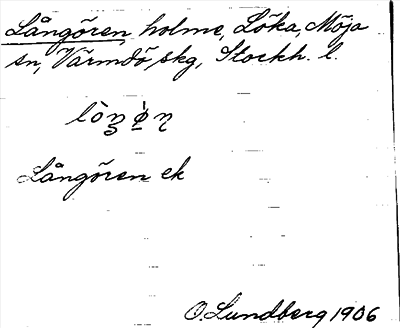 Långören, holme, Löka, Möja
sn, Värmdö skg, Stockh. l.
Långören ek
O. Lundberg 1906